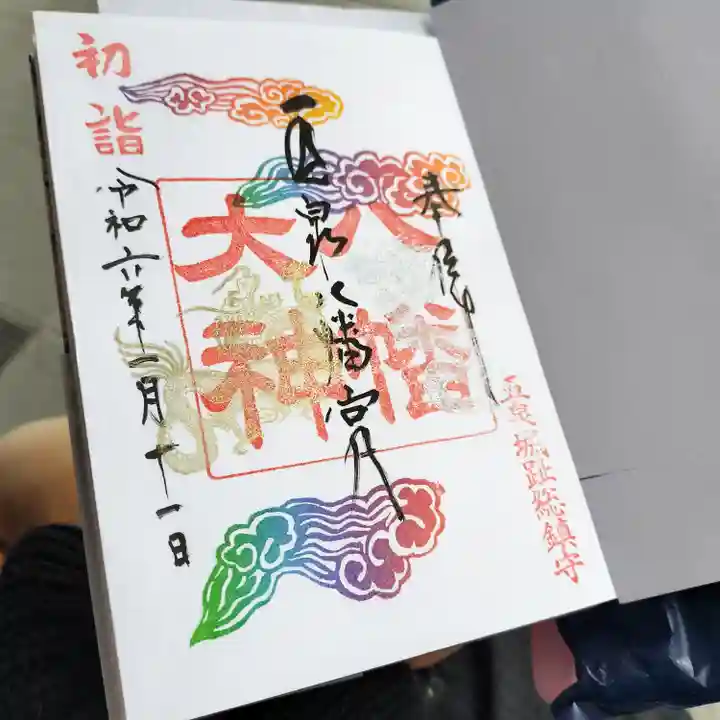 奉拝
五泉城趾総鎮守
五泉八幡宮
八幡
大神
初詣
令和六年一月十一日